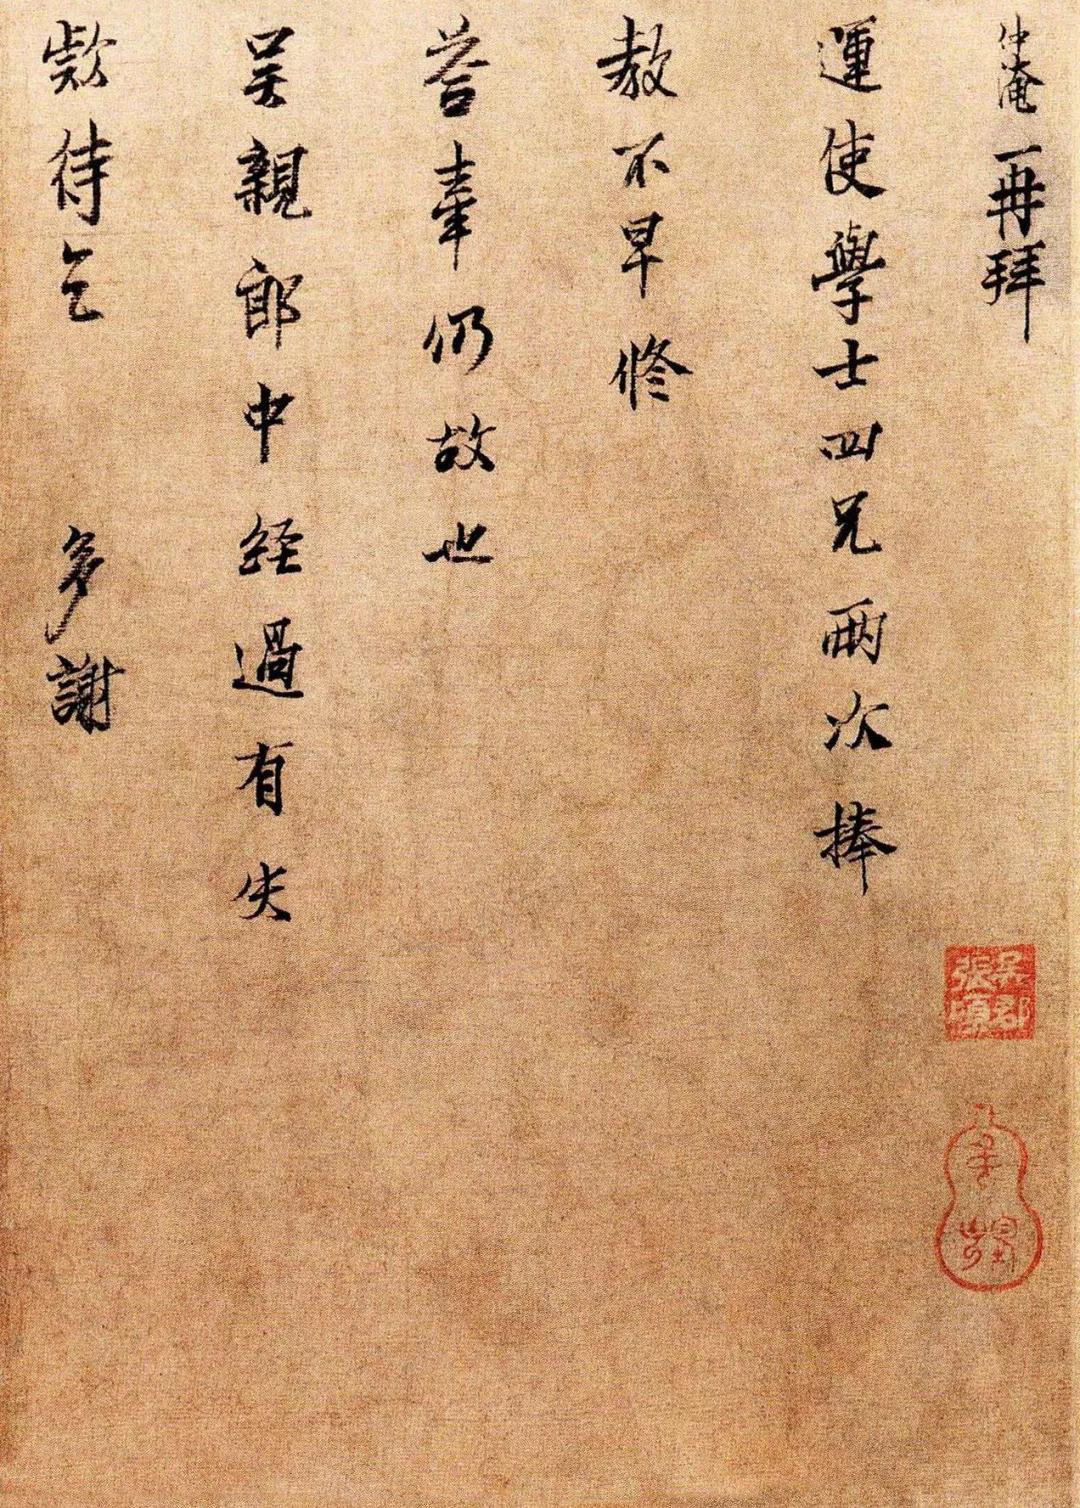 仲淹再拜
運使學士四兄兩次捧
教不早修
荅奉仍故也
吴親郎中経過有失
欵待乞 多謝
吴郡
張頔